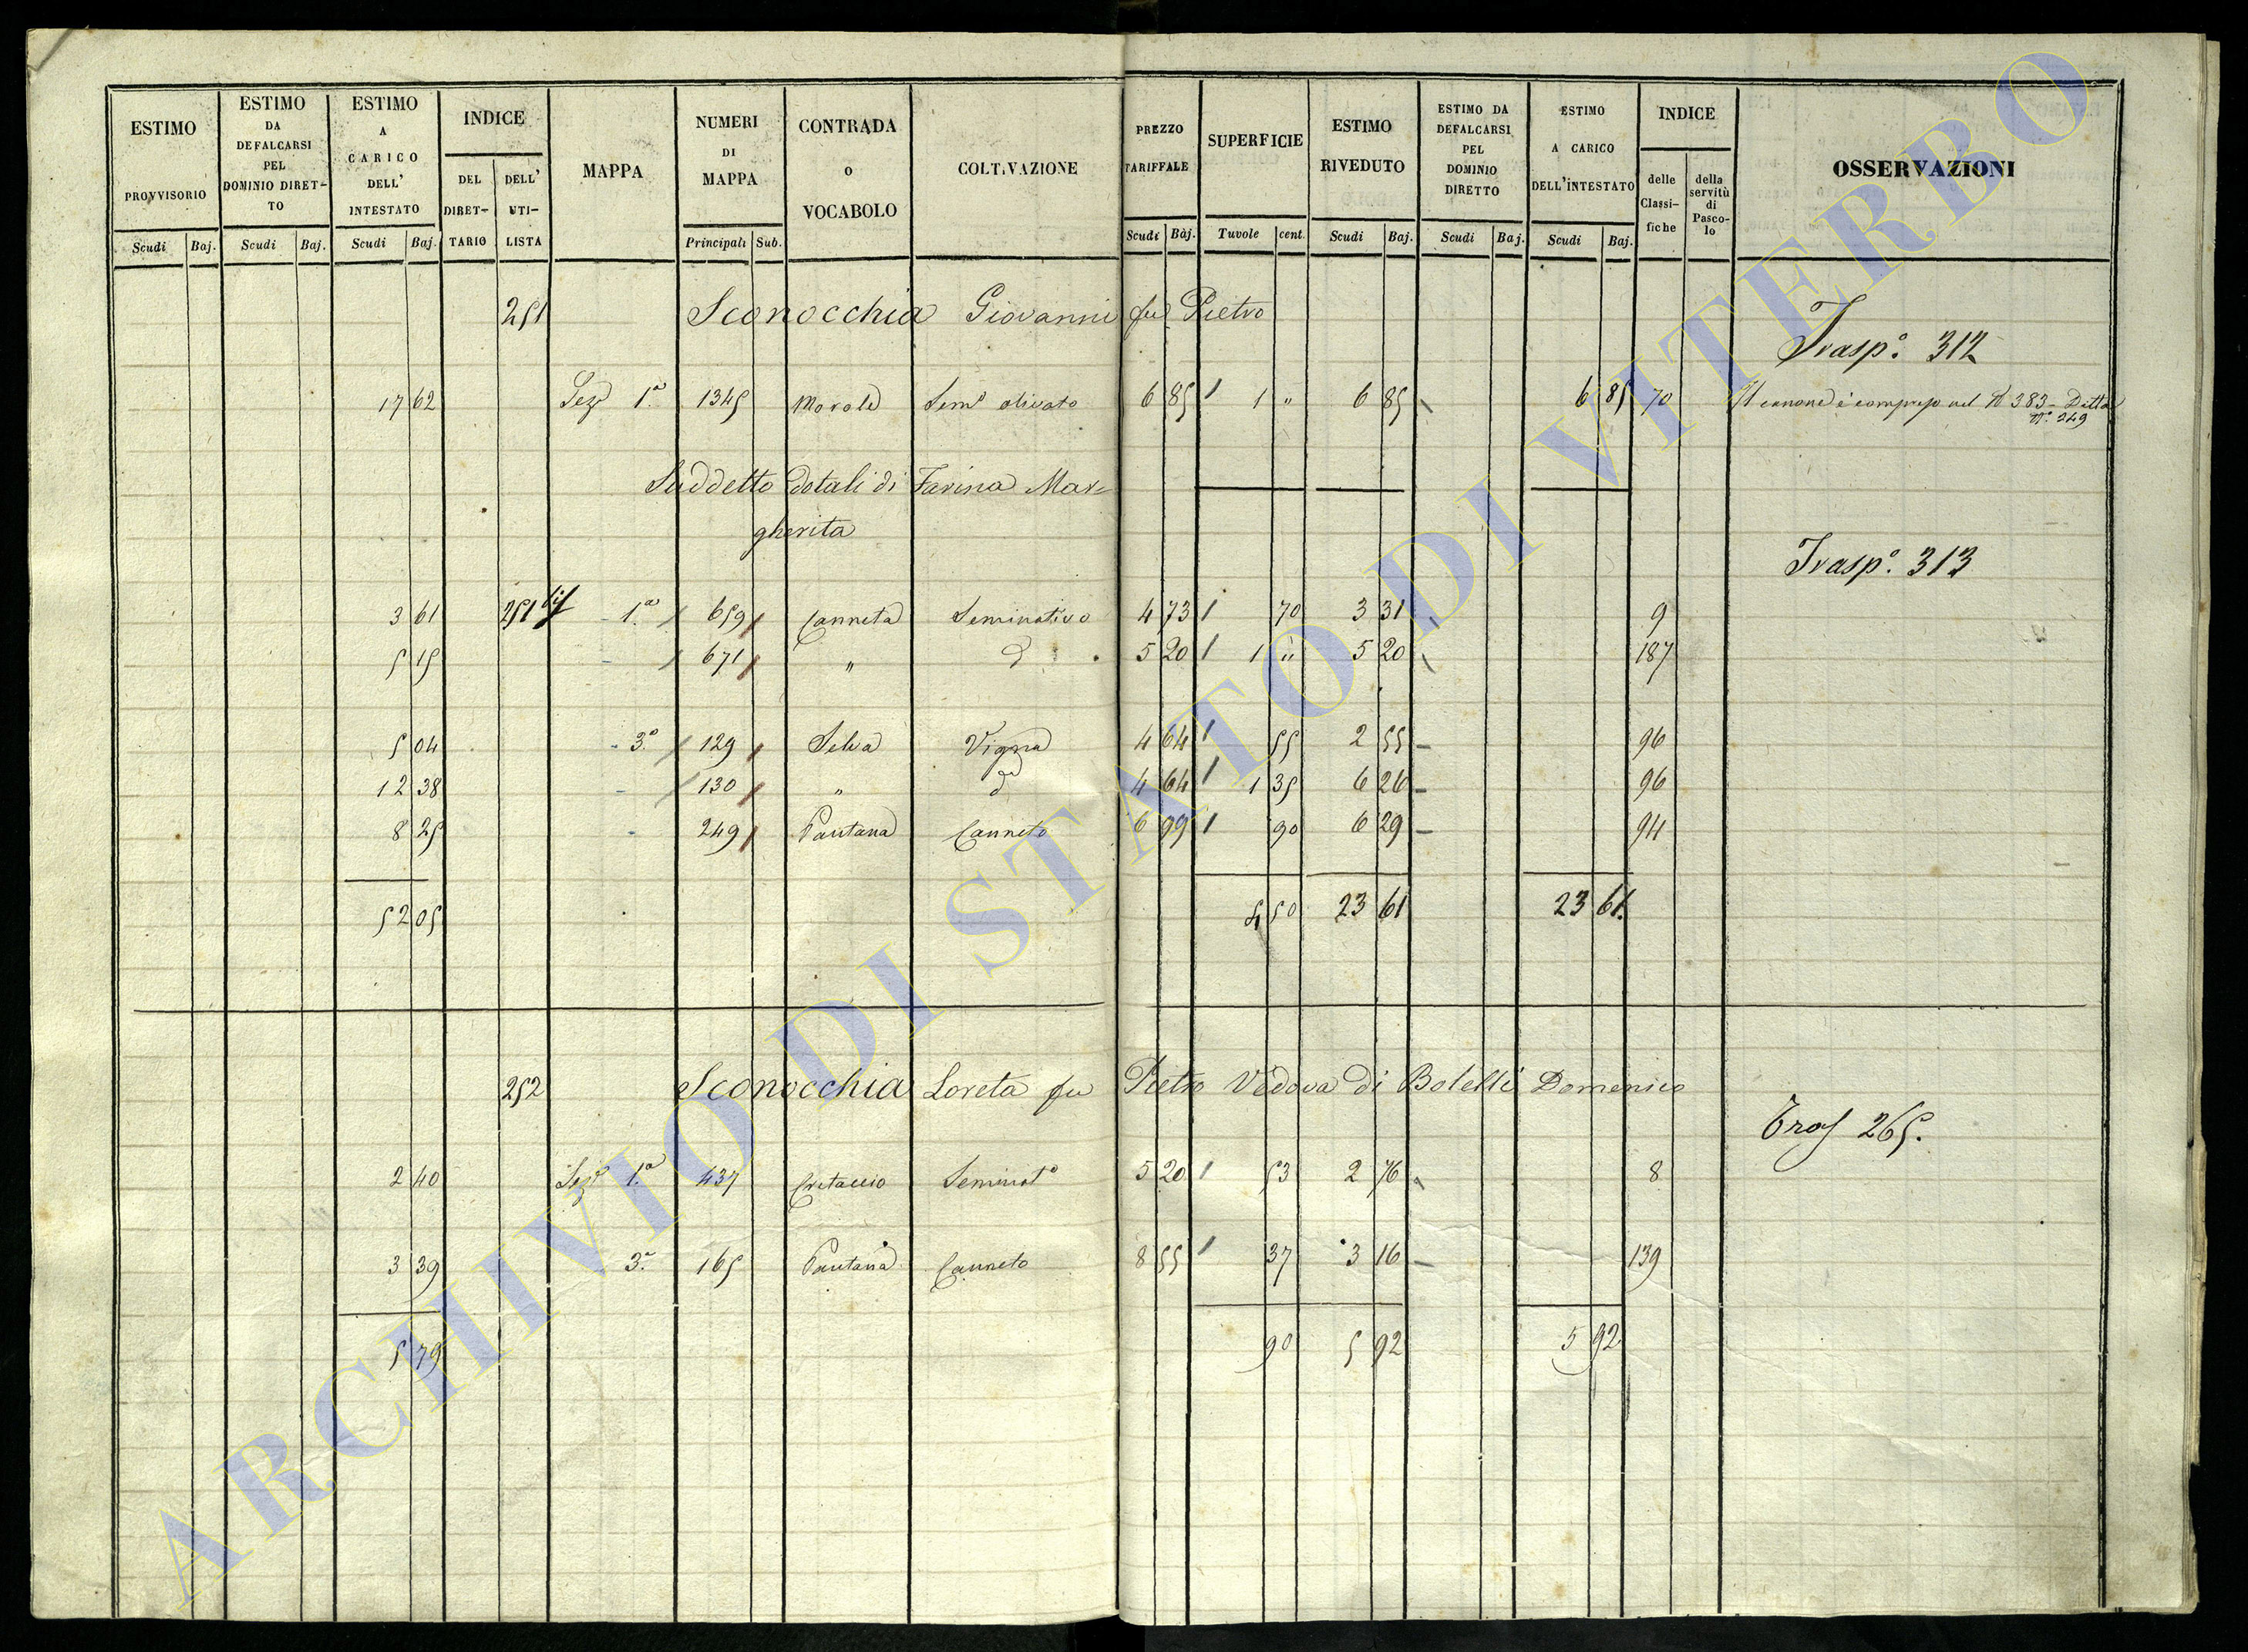 ESTIMO PROVVISORIO
ESTIMO DA DEFALCARSI PEL DOMINIO DIRET-TO
ESTIMO A CARICO DELL' INTESTATO
INDICE
DEL DIRET-TARIO
DELL' UTI-LISTA
MAPPA
NUMERI DI MAPPA
CONTRADA O VOCABOLO
COLTIVAZIONE
PREZZO TARIFFALE
SUPERFICIE
ESTIMO RIVEDUTO
ESTIMO DA DEFALCARSI PEL DOMINIO DIRETTO
ESTIMO A CARICO DELL'INTESTATO
INDICE
delle Classi-fiche
della servitù di Pasco-lo
OSSERVAZIONI
Scudi Baj. Scudi Baj. Scudi Baj. Principali Sub. Scudi Baj. Tavole cent. Scudi Baj. Scudi Baj. Scudi Baj.
251 Sconocchia Giovanni fu Pietro
Trasp.º 312
17 62 Sez 1.ª 1345 Morale Sem.º olivato 6 85 1 " 6 85 6 85 70 Il canone è compreso nel N 383 - Ditta
N.º 249
Suddetto dotali di Farina Mar-
gherita
Trasp.º 313
3 61 251 bis 1.ª 659 Canneta Seminativo 4 73 70 3 31 9
5 15 671 " d 5 20 1 " 5 20 187
5 04 3.ª 129 Selva Vigna 4 64 55 2 55 96
12 38 130 " d 4 64 1 35 6 26 96
8 25 249 Pantana Canneto 6 99 90 6 29 94
52 05 4 50 23 61 23 61
252 Sconocchia Loreta fu Pietro Vedova di Bolelli Domenico
Tras 265.
2 40 Sez 1.ª 437 Cretaccio Seminat.º 5 20 53 2 76 8
3 39 3.ª 165 Pantana Canneto 8 55 37 3 16 139
5 79 90 5 92 5 92
ARCHIVIO DI STATO DI VITERBO